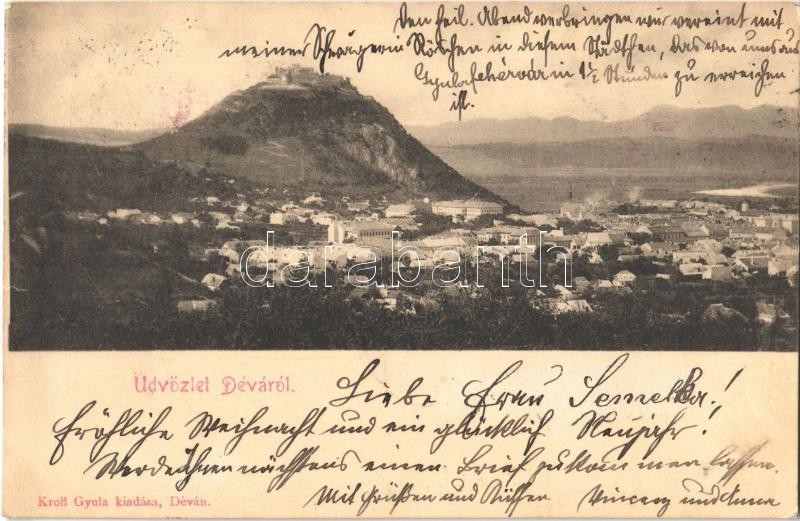 Den heil. Abend verbringen wir vereint mit
meiner Schwägerin Röschen in diesem Städtchen, das von uns aus
Gyulafehérvár in 1½ Stunden zu erreichen
ist.
darabanth
Üdvözlet Déváról.
Liebe Frau Semelka!
Fröhliche Weihnacht und ein glücklich Neujahr!
Werde Ihnen nächstens einen Brief zukommen lassen.
Mit Grüßen und Küssen Vincenz und Anna
Kroll Gyula kiadása, Déván.